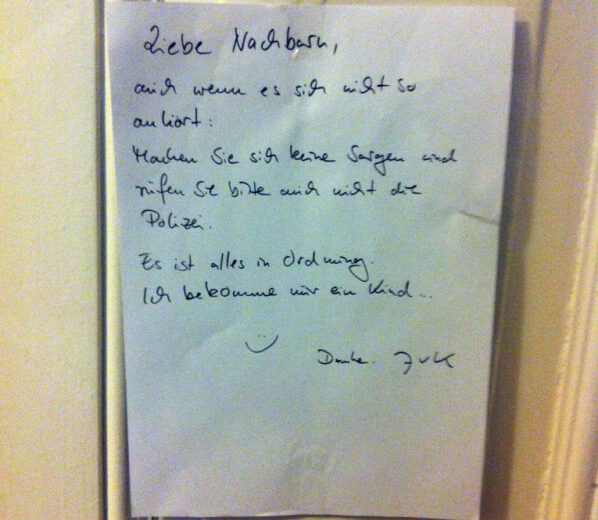 Liebe Nachbarn,
auch wenn es sich nicht so
anhört:
Machen Sie sich keine Sorgen und
rufen Sie bitte auch nicht die
Polizei.
Es ist alles in Ordnung.
Ich bekomme nur ein Kind...
:)
Danke. JvK